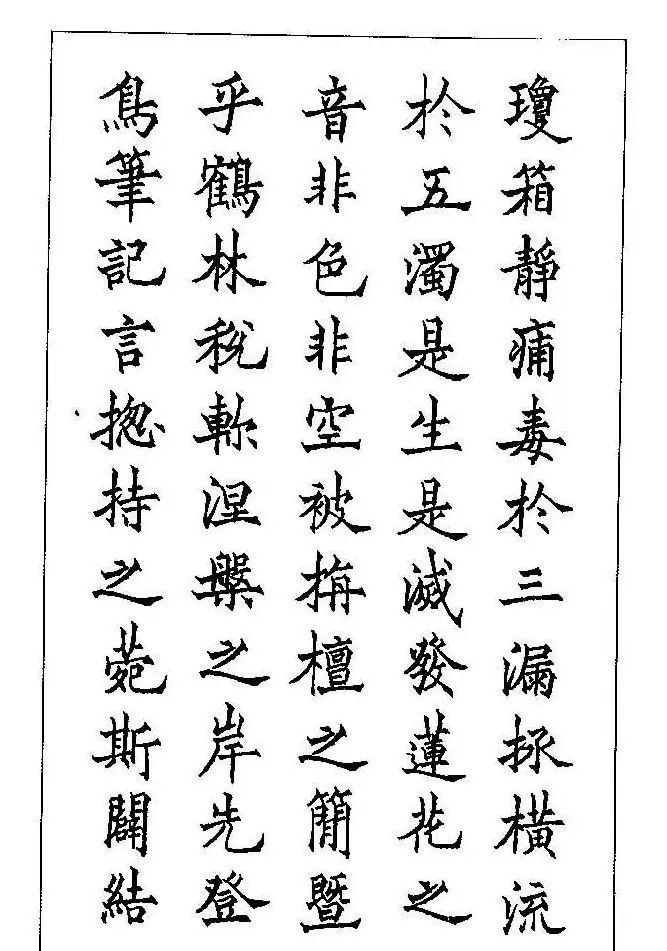 瓊箱靜痡毒於三漏拯橫流
於五濁是生是滅發蓮花之
音非色非空被栴檀之簡暨
乎鶴林稅軷涅槃之岸先登
鳥筆記言揔持之菀斯闢結